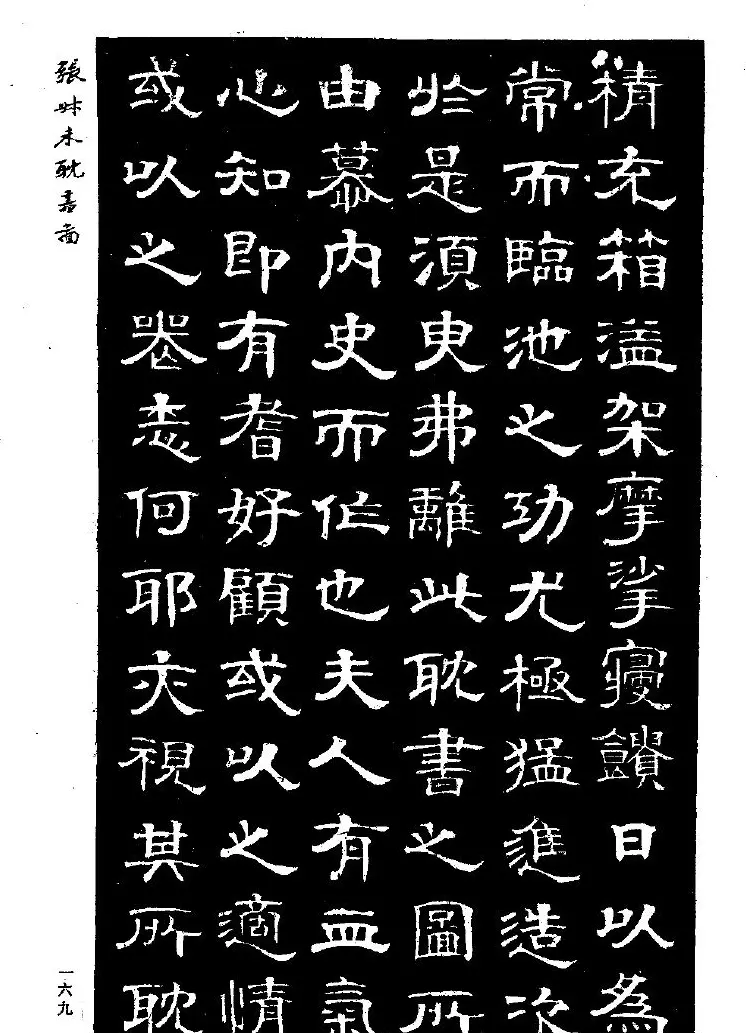 積充箱溢架摩挲寢饋日以為
常而臨池之功尤極猛進造次
於是須臾弗離此耽書之圖所
由慕內史而作也夫人有血氣
心知即有耆好顧或以之適情
或以之喪志何耶亦視其所耽
張叔未耽書圖
一六九